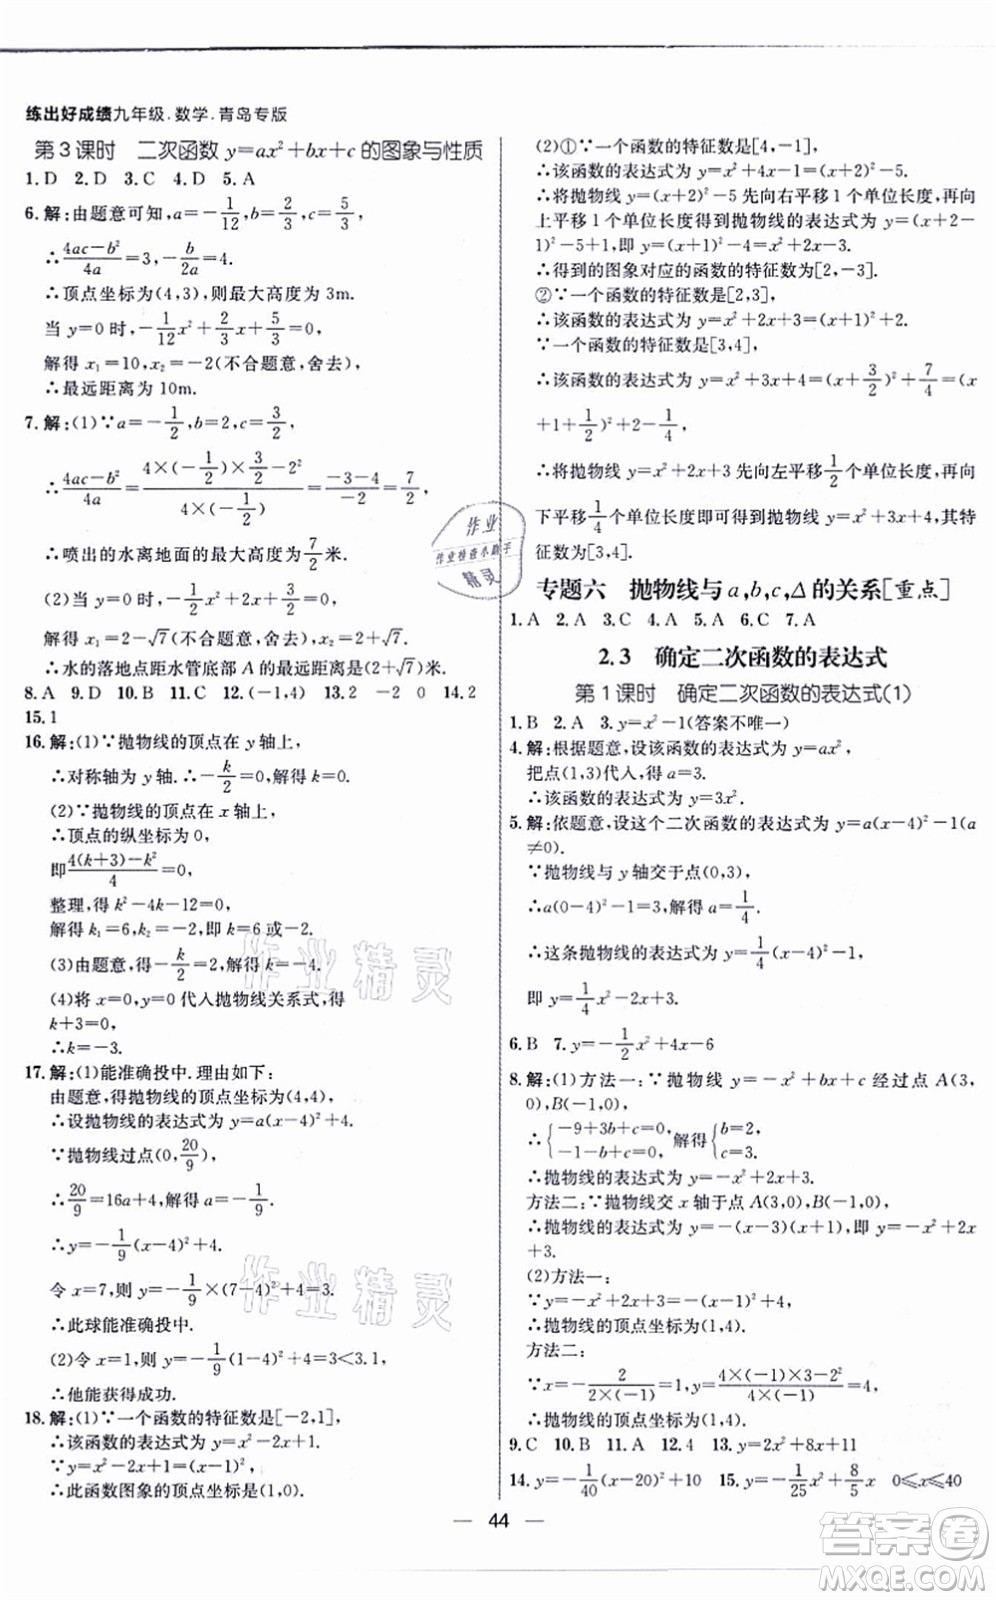 练出好成绩九年级.数学.青岛专版
第3课时 二次函数 y=ax²+bx+c 的图象与性质
1.D 2.D 3.C 4.D 5.A
6.解:由题意可知,a=-1/12,b=2/3,c=5/3,
∴(4ac-b²)/4a=3,-b/2a=4.
∴顶点坐标为(4,3),则最大高度为3m.
当 y=0 时,-1/12x²+2/3x+5/3=0,
解得 x₁=10,x₂=-2(不合题意,舍去).
∴最远距离为10m.
7.解:(1)∵a=-1/2,b=2,c=3/2,
∴(4ac-b²)/4a=(4×(-1/2)×3/2-2²)/(4×(-1/2))=(-3-4)/-2=7/2,
∴喷出的水离地面的最大高度为7/2米.
(2)当 y=0 时,-1/2x²+2x+3/2=0,
解得 x₁=2-√7(不合题意,舍去),x₂=2+√7,
∴水的落地点距水管底部 A 的最远距离是(2+√7)米.
8.A 9.D 10.B 11.C 12.(-1,4) 13.2 -2 0 14.2
15.1
16.解:(1)∵抛物线的顶点在 y 轴上,
∴对称轴为 y 轴.∴-k/2=0,解得 k=0.
(2)∵抛物线的顶点在 x 轴上,
∴顶点的纵坐标为0,
即(4(k+3)-k²)/4=0,
整理,得 k²-4k-12=0,
解得 k₁=6,k₂=-2,即 k=6 或-2.
(3)由题意,得-k/2=2,解得 k=-4.
(4)将 x=0,y=0 代入抛物线关系式,得
k+3=0,
∴k=-3.
17.解:(1)能准确投中.理由如下:
由题意,得抛物线的顶点坐标为(4,4),
∴设抛物线的表达式为 y=a(x-4)²+4.
∵抛物线过点(0,20/9),
∴20/9=16a+4,解得 a=-1/9.
∴y=-1/9(x-4)²+4.
令 x=7,则 y=-1/9×(7-4)²+4=3.
∴此球能准确投中.
(2)令 x=1,则 y=-1/9(1-4)²+4=3<3.1,
∴他能获得成功.
18.解:(1)∵一个函数的特征数是[-2,1],
∴该函数的表达式为 y=x²-2x+1.
∵y=x²-2x+1=(x-1)²,
∴此函数图象的顶点坐标是(1,0).
(2)①∵一个函数的特征数是[4,-1],
∴该函数的表达式为 y=x²+4x-1=(x+2)²-5.
∴将抛物线 y=(x+2)²-5 先向右平移1个单位长度,再向
上平移1个单位长度得到抛物线的表达式为 y=(x+2-
1)²-5+1,即 y=x²+2x-3.
∴得到的图象对应的函数的特征数为[2,-3].
②∵一个函数的特征数是[2,3],
∴该函数的表达式为 y=x²+2x+3=(x+1)²+2.
∵一个函数的特征数为[3,4],
∴该函数的表达式为 y=x²+3x+4=(x+3/2)²+7/4=(x
+1+1/2)²+2-1/4,
∴将抛物线 y=x²+2x+3 先向左平移1/2个单位长度,再向
下平移1/4个单位长度即可得到抛物线 y=x²+3x+4,其特
征数为[3,4].
专题六 抛物线与 a,b,c,Δ 的关系[重点]
1.A 2.A 3.C 4.A 5.A 6.C 7.A
2.3 确定二次函数的表达式
第1课时 确定二次函数的表达式(1)
1.B 2.A 3.y=x²-1(答案不唯一)
4.解:根据题意,设该函数的表达式为 y=ax²,
把点(1,3)代入,得 a=3.
∴该函数的表达式为 y=3x².
5.解:依题意,设这个二次函数的表达式为 y=a(x-4)²-1(a
≠0).
∵抛物线与 y 轴交于点(0,3),
∴a(0-4)²-1=3.解得 a=1/4.
∴这条抛物线的表达式为 y=1/4(x-4)²-1,
即 y=1/4x²-2x+3.
6.B 7.y=-1/2x²+4x-6
8.解:(1)方法一:∵抛物线 y=-x²+bx+c 经过点 A(3,
0),B(-1,0),
∴{-9+3b+c=0, -1-b+c=0, 解得{b=2, c=3.
∴抛物线的表达式为 y=-x²+2x+3.
方法二:∵抛物线交 x 轴于点 A(3,0),B(-1,0),
∴抛物线的表达式为 y=-(x-3)(x+1),即 y=-x²+2x
+3.
(2)方法一:
∵y=-x²+2x+3=-(x-1)²+4,
∴抛物线的顶点坐标为(1,4).
方法二:
∵x=-2/(2×(-1))=1,y=(4×(-1)×3-2²)/(4×(-1))=4,
∴抛物线的顶点坐标为(1,4).
9.C 10.B 11.A 12.4 13.y=2x²+8x+11
14.y=-1/40(x-20)²+10 15.y=-1/25x²+8/5x 0≤x≤40
— 44 —
作业
作业检查小助手
精灵
作业精灵
作业精灵
答案卷
MXQE.COM